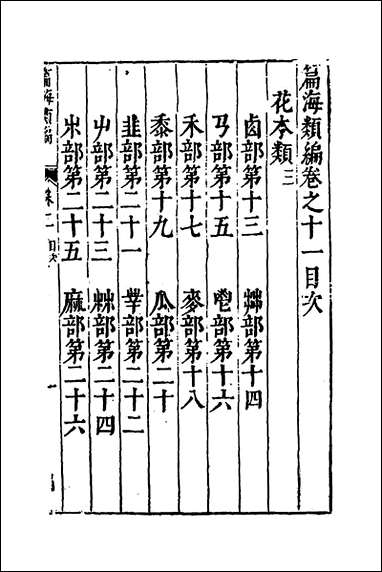 篇海類編卷之十一目次
花木類三
卤部第十三 艸部第十四
丂部第十五 鬯部第十六
禾部第十七 麥部第十八
黍部第十九 瓜部第二十
韭部第二十一 部第二十二
屮部第二十三 部第二十四
部第二十五 麻部第二十六
篇海類編